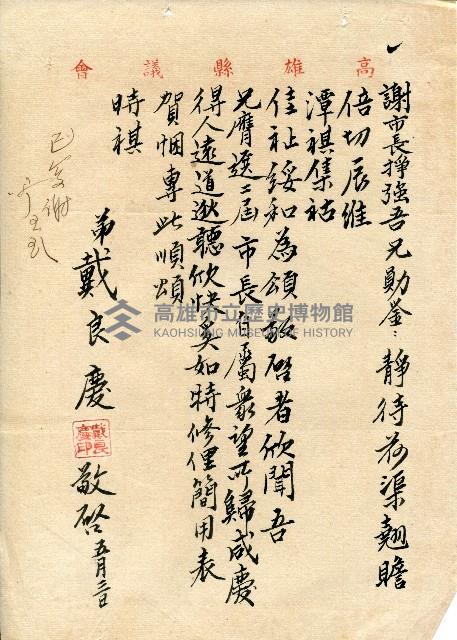 高雄縣議會
謝市長掙強吾兄勛鉴：靜待荷渠翹瞻
倍切辰維
潭祺集祜
佳祉綏和為頌敬啓者欣聞吾
兄膺選二屆市長自屬衆望所歸咸慶
得人遠道逖聽欣快奚如特修俚簡用表
賀悃專此順頌
時祺
弟戴良慶
戴良慶印
敬啓五月三日
已箋謝
高雄市立歷史博物館
KAOHSIUNG MUSEUM OF HISTORY